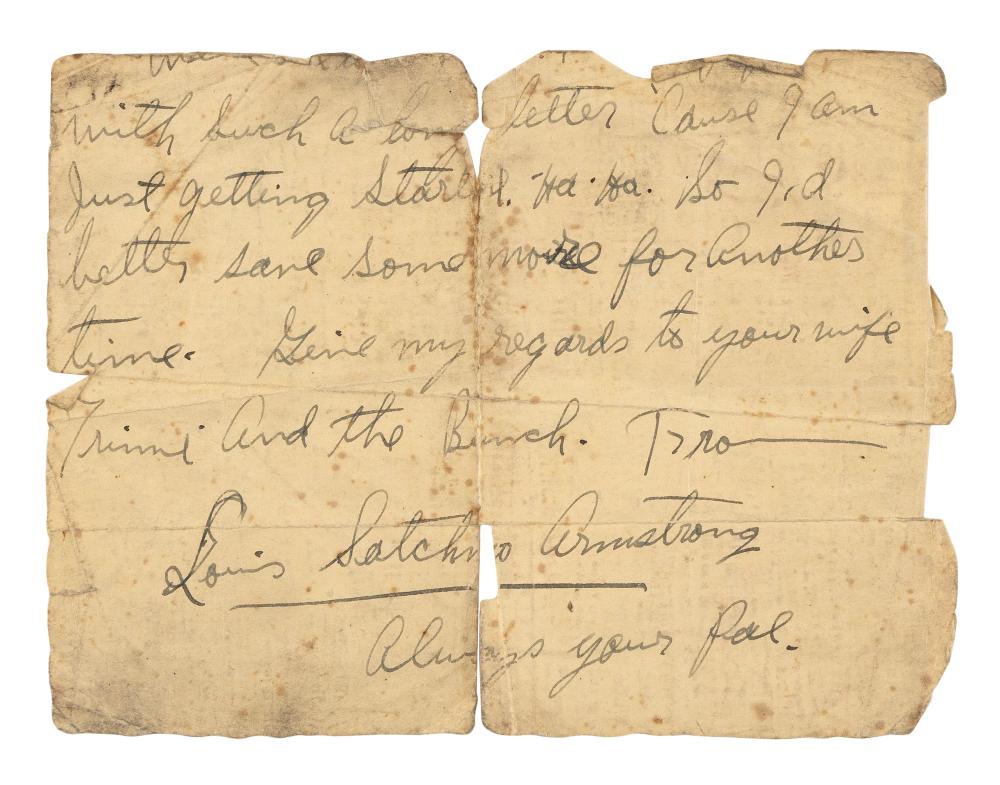 with such a long letter 'Cause I am
Just getting Started. Ha. Ha. So I,d
better save some more for Another
time. Give my regards to your wife
And the Bunch. Fro
Louis Satchmo Armstrong
Always your Pal.